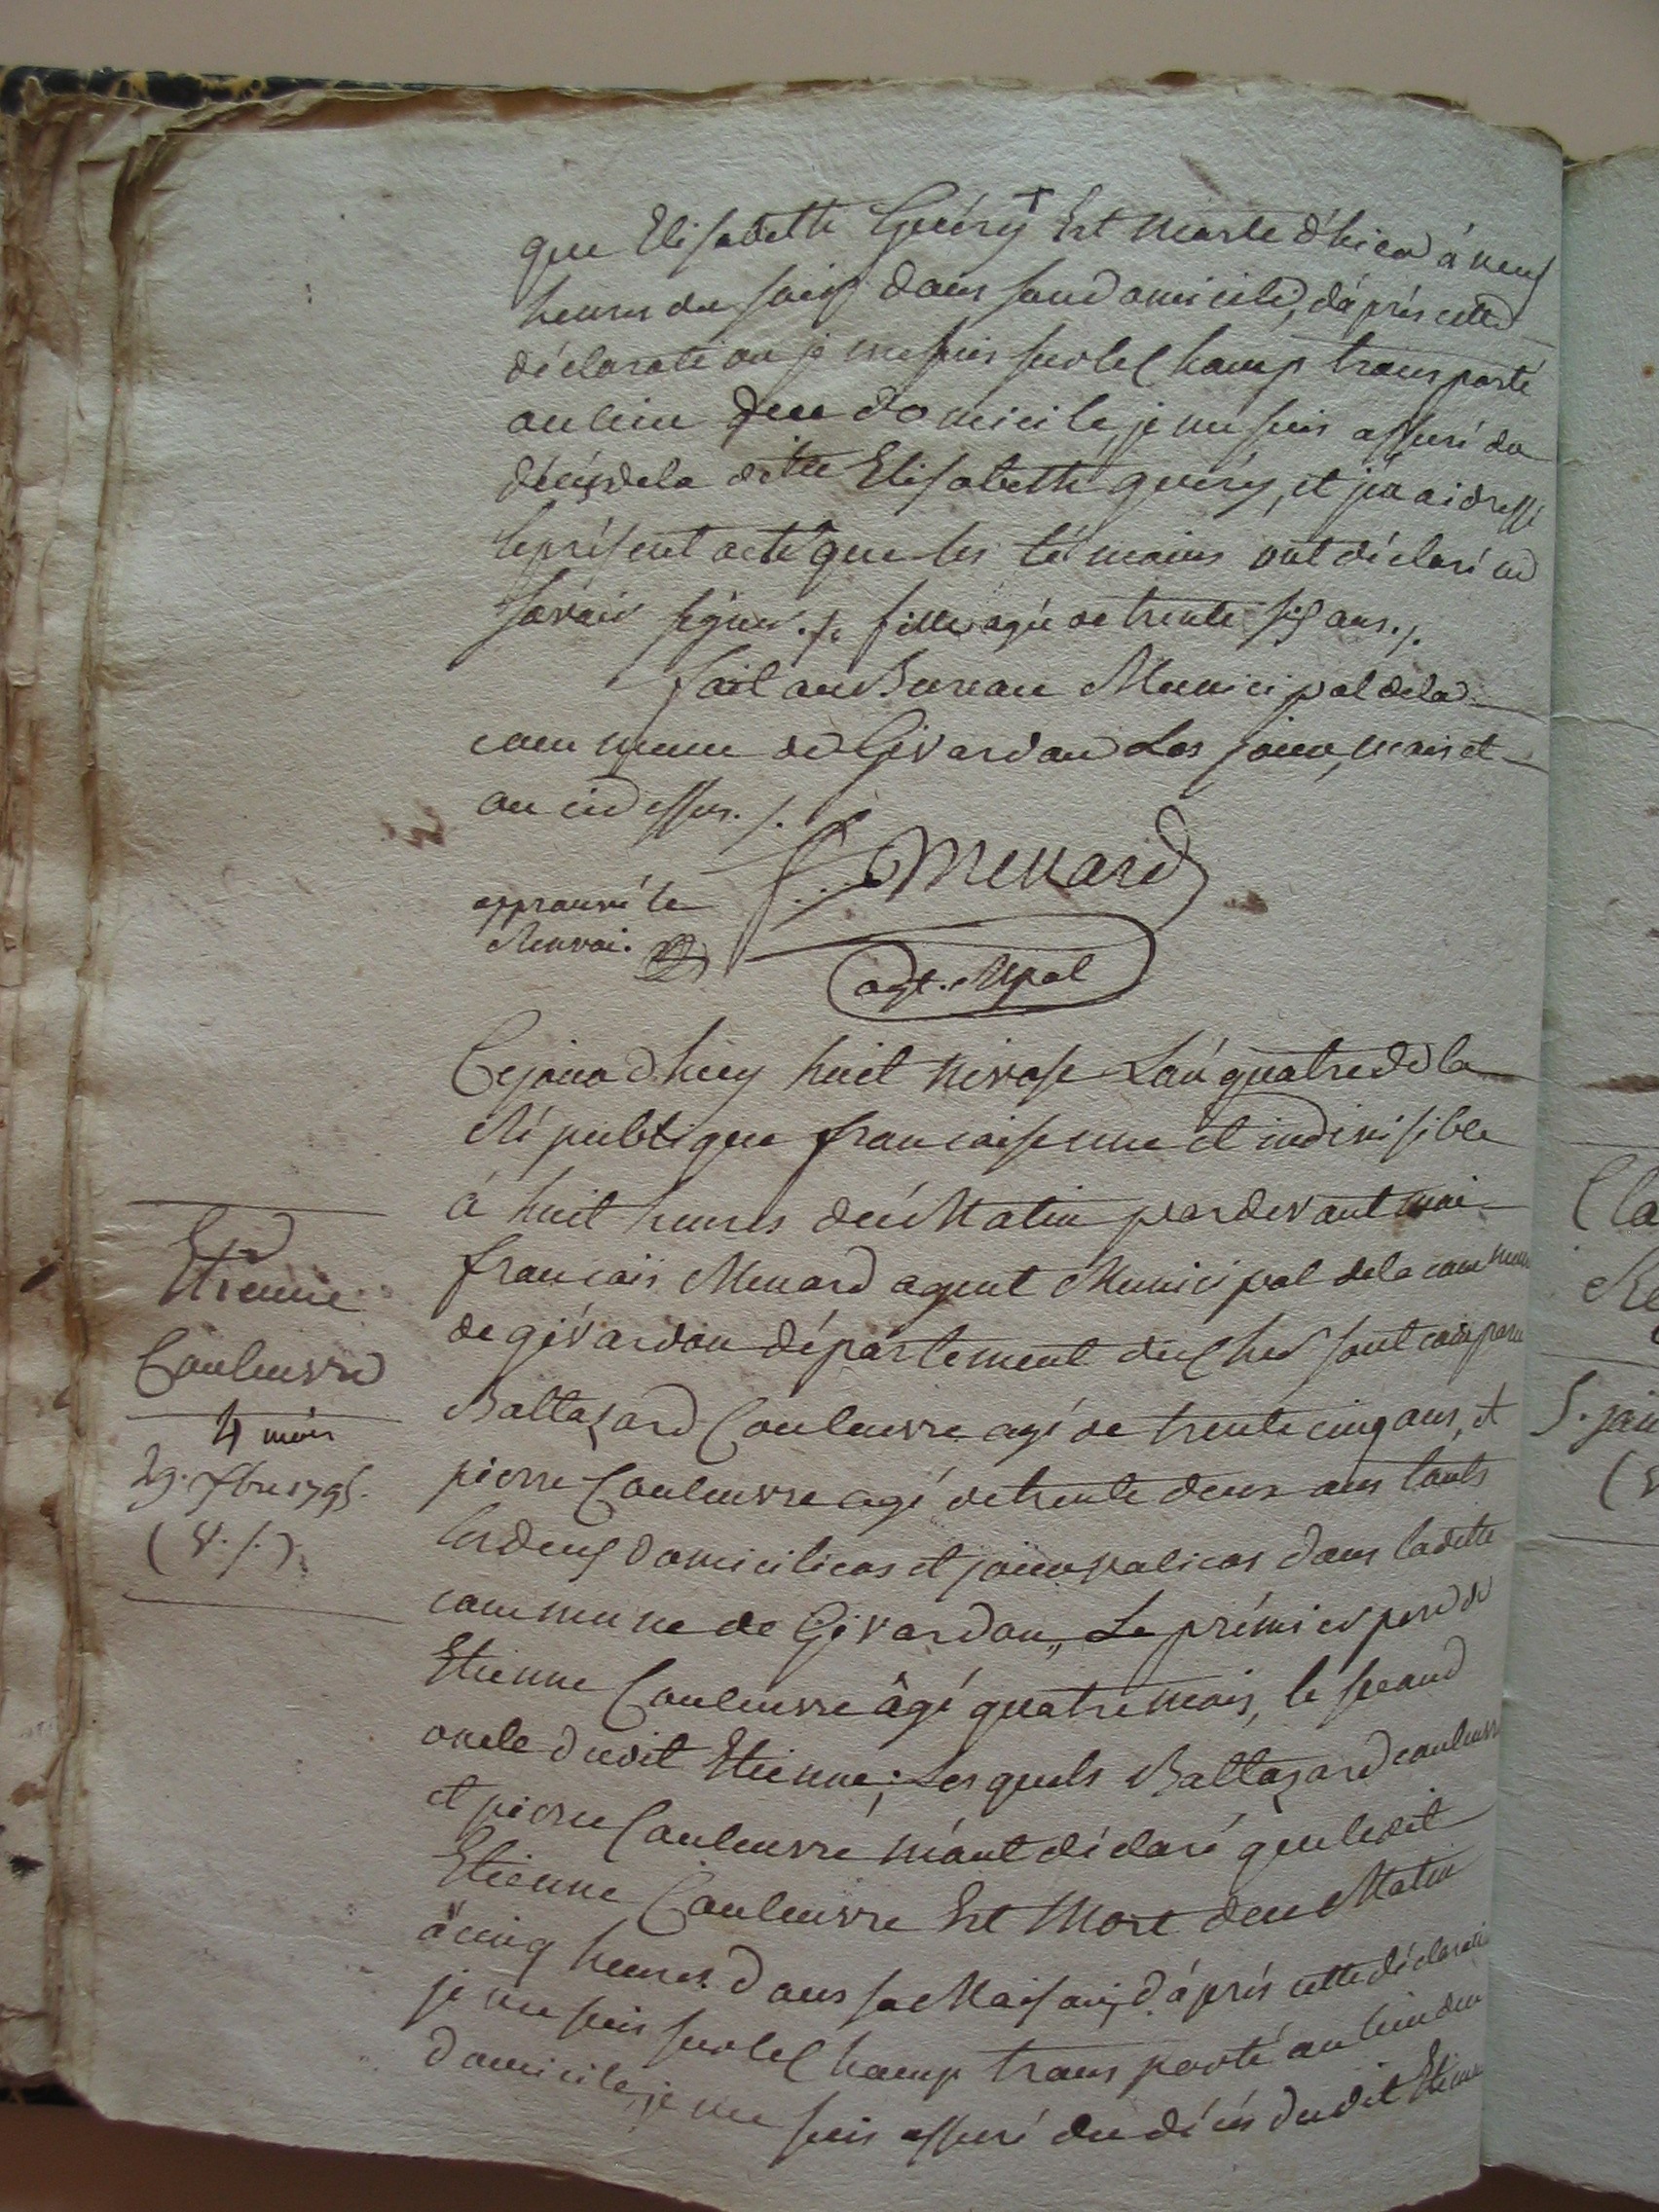 que Elisabette Guéry + Est morte d'hier à neuf
heures du soir dans son domicille, d'après cette
déclaration je me suis sur le Champ transporté
au lieu du domicile, je me suis assuré du
décés de la ditte Elisabette guéry, et j'en ai dressé
le présent acte que les témoins ont déclaré ne
savoir signer ./. fille agée de trente six ans ./.
fait au Bureau Municipal de la
commune de Givardon Les jour, mois et
an cidessus ./.
approuvé le
Renvoi.
f. Menard
agt. Mpal
Cejourdhuy huit nivose L'an quatre de la
République francaise une et indivisible
à huit heures du Matin pardevant moi
francois Menard agent Municipal de la commune
de givardon département du Cher sont comparu
Baltazard Couleuvre agé de trente cinq ans, et
pierre Couleuvre agé de trente deux ans touts
les deux domiciliers et journaliers dans laditte
commune de Givardon, Le prémier pere de
Etienne Couleuvre âgé quatre mois, le second
oncle dudit Etienne; Lesquels Baltazard couleuvre
et pierre Couleuvre m'ont déclaré que ledit
Etienne Couleuvre Est Mort du Matin
à cinq heures dans sa Maison, d'après cette déclaration
je me suis sur le Champ transporté au lieu du
domicile, je me suis assuré du décés dudit Etienne
Etienne
Couleuvre
4 mois
29. Xbre 1795.
(V. S.)
Cla
Re
S. jan
(v